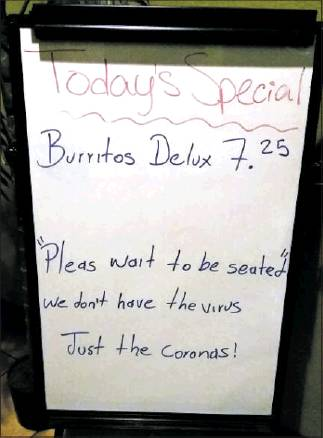 Today's Special
Burritos Delux 7.25
"Pleas wait to be seated"
we don't have the virus
Just the coronas!